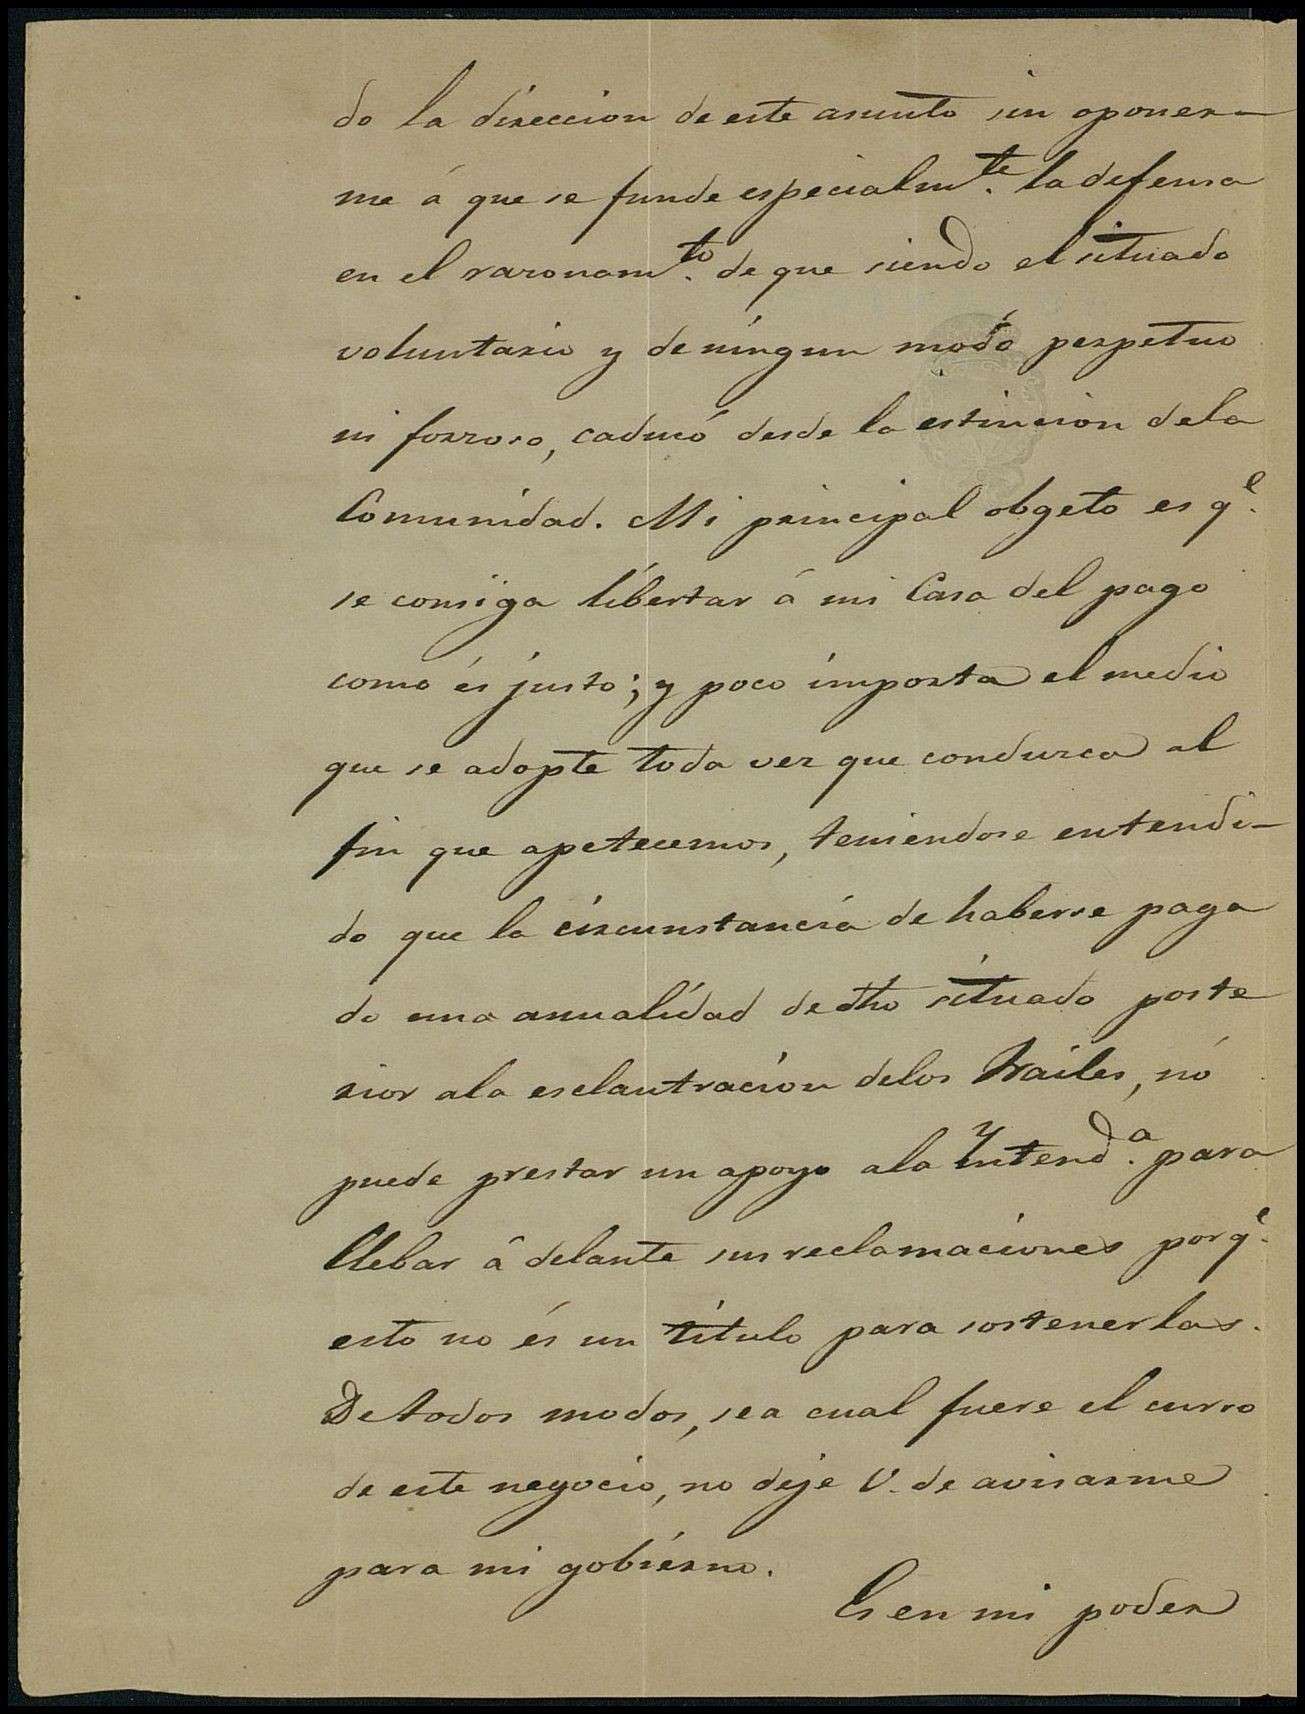 do la direccion de este asunto sin oponer-
me á que se funde especialm.te la defensa
en el razonam.to de que siendo el situado
voluntario y de ningun modo perpetuo
ni forzoso, caducó desde la estincion de la
Comunidad. Mi principal obgeto es q.e
se consiga libertar á mi Casa del pago
como és justo; y poco importa el medio
que se adopte toda vez que conduzca al
fin que apetecemos, teniendose entendi-
do que la circunstancia de haberse paga
do una anualidad de dho situado poste
rior ala esclaustracion delos Frailes, nó
puede prestar un apoyo ala Yntend.a para
llebar á delante sus reclamaciones porq.e
esto no és un titulo para sostenerlas.
De todos modos, sea cual fuere el curso
de este negocio, no deje V. de avisarme
para mi gobierno.
Es en mi poder